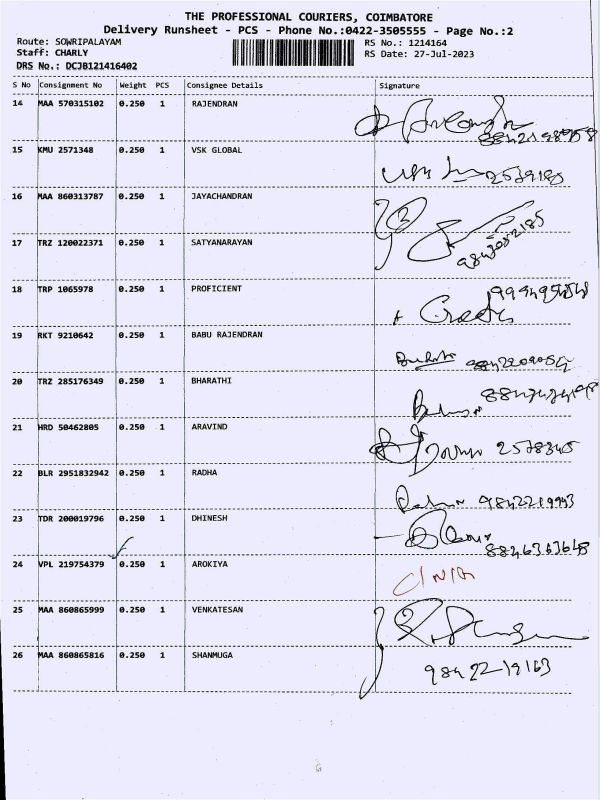 THE PROFESSIONAL COURIERS, COIMBATORE
Delivery Runsheet - PCS - Phone No.:0422-3505555 - Page No.:2
Route: SOWRIPALAYAM
Staff: CHARLY
DRS No.: DCJB121416402
RS No.: 1214164
RS Date: 27-Jul-2023
S No Consignment No Weight PCS Consignee Details Signature
14 MAA 570315102 0.250 1 RAJENDRAN
15 KMU 2571348 0.250 1 VSK GLOBAL
16 MAA 860313787 0.250 1 JAYACHANDRAN
17 TRZ 120022371 0.250 1 SATYANARAYAN
18 TRP 1065978 0.250 1 PROFICIENT
19 RKT 9210642 0.250 1 BABU RAJENDRAN
20 TRZ 285176349 0.250 1 BHARATHI
21 HRD 50462805 0.250 1 ARAVIND 2578345
22 BLR 2951832942 0.250 1 RADHA 9842219993
23 TDR 200019796 0.250 1 DHINESH
24 VPL 219754379 0.250 1 AROKIYA
25 MAA 860865999 0.250 1 VENKATESAN
26 MAA 860865816 0.250 1 SHANMUGA 9842219163